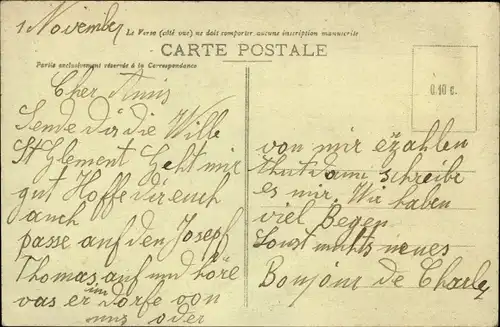 1 November
Le Verso (côté vue) ne doit comporter aucune inscription manuscrite
CARTE POSTALE
Partie exclusivement réservée à la Correspondance
0.10 c.
Cher Amis
Sende dir die Wille
St Glement Geht mir
gut Hoffe dir euch
auch
passe auf den Joseph
Thomas auf und höre
vas er im dorfe von
uns oder
von mir ezahlen
thut dann schreibe
es mir. Wir haben
viel Regen
Sonst nichts neues
Bonjour de Charley